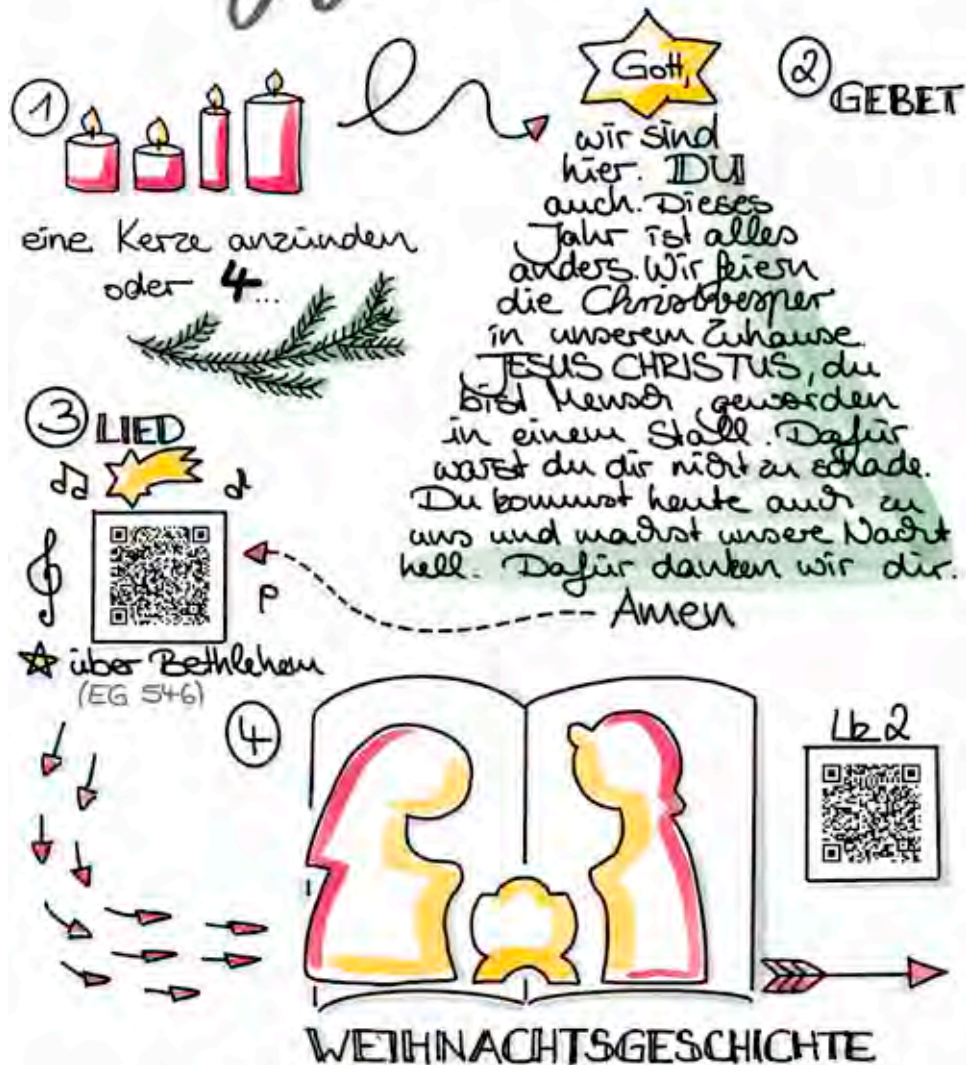 1
eine Kerze anzünden
oder 4...
2
GEBET
Gott,
wir sind
hier. DU
auch. Dieses
Jahr ist alles
anders. Wir feiern
die Christvesper
in unserem Zuhause.
JESUS CHRISTUS, du
bist Mensch geworden
in einem Stall. Dafür
warst du dir nicht zu schade.
Du kommst heute auch zu
uns und machst unsere Nacht
hell. Dafür danken wir dir.
Amen
3
LIED
über Bethlehem
(EG 546)
4
Lk 2
WEIHNACHTSGESCHICHTE